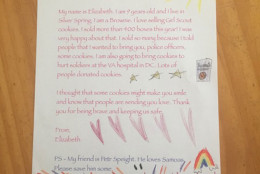 My name is Elizabeth. I am 9 years old and I live in
Silver Spring. I am a Brownie. I love selling Girl Scout
cookies. I sold more than 900 boxes this year! I was
very happy about that. I sold so many because I told
people that I wanted to bring you, police officers,
some cookies. I am also going to bring cookies to
hurt soldiers at the VA hospital in DC. Lots of
people donated cookies.
I thought that some cookies might make you smile
and know that people are sending you love. Thank
you for being brave and keeping us safe.
From,
Elizabeth
PS - My friend is Pete Speight. He loves Samoas.
Please save him some.